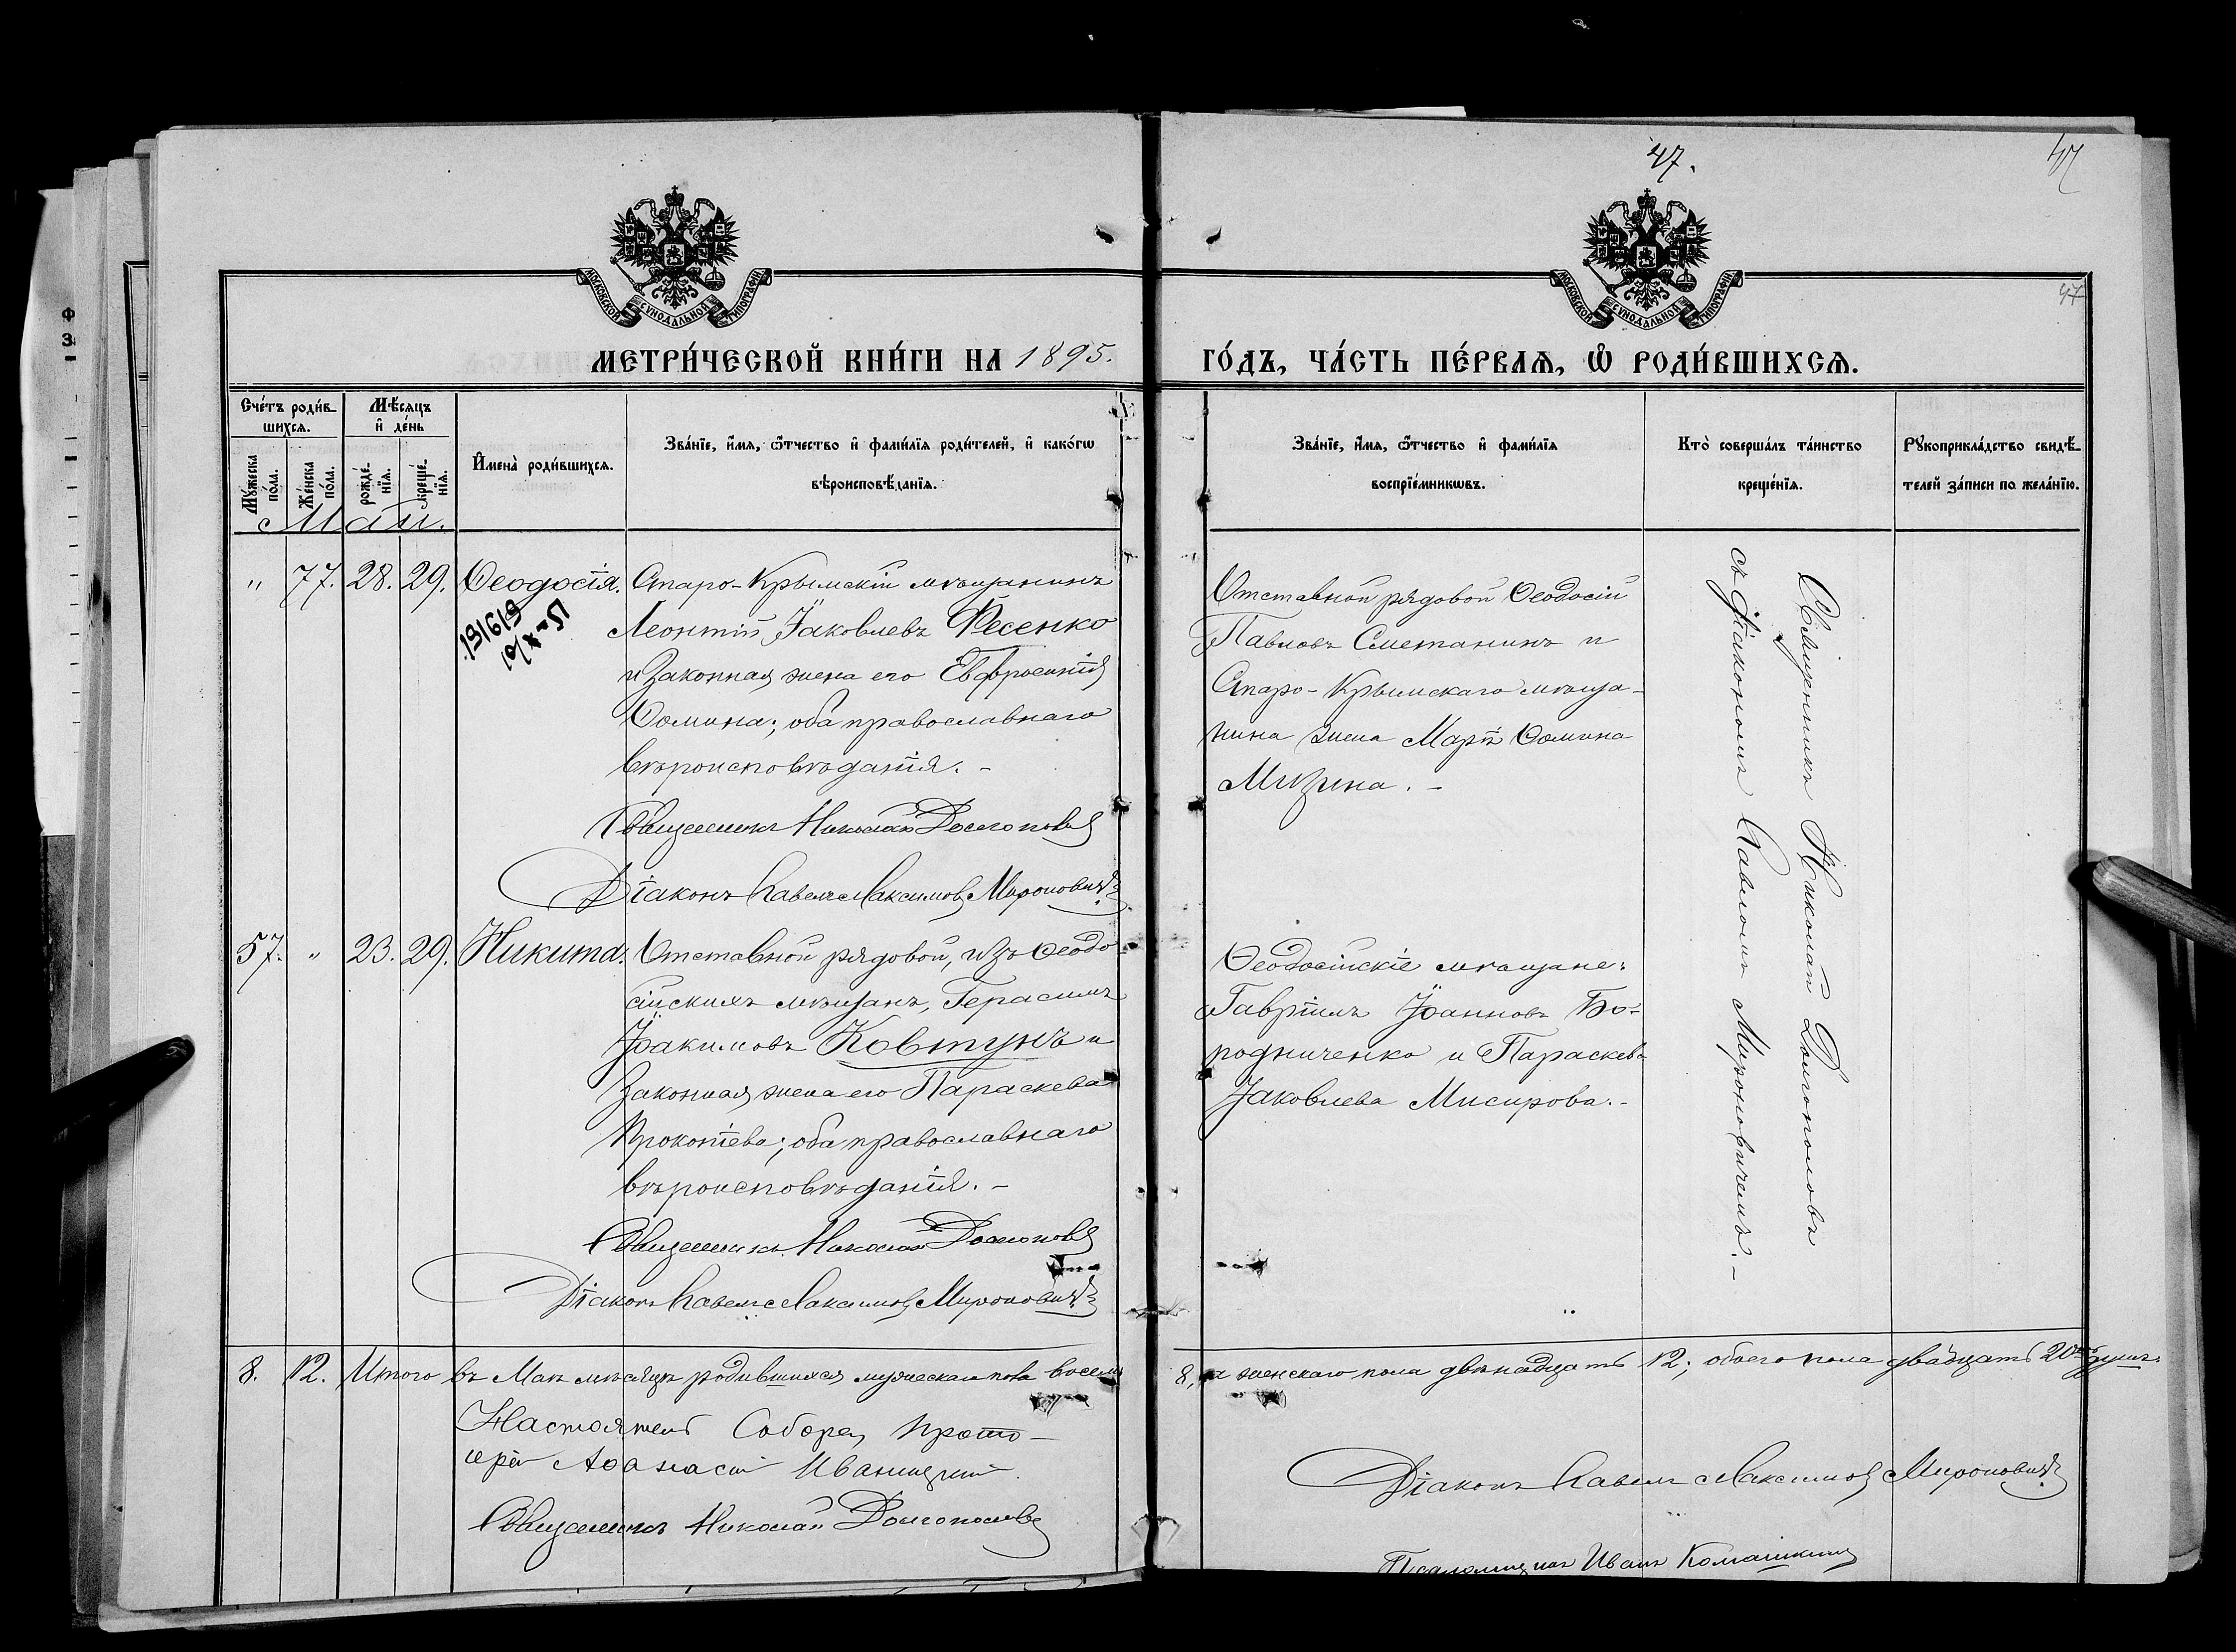 47.
47
47
МОСКОВСКОЙ СѴНОДАЛЬНОЙ ТИПОГРАФІИ
МОСКОВСКОЙ СѴНОДАЛЬНОЙ ТИПОГРАФІИ
МЕТРИ́ЧЕСКОЙ КНИ́ГИ НА 1895.
ГО́ДЪ, ЧА́СТЬ ПЕ́РВАѦ, Ѡ҆ РОДИ́ВШИХСѦ.
Сче́тъ роди́в-
шихсѧ.
Мѣ́сѧцъ
и҆ де́нь
Мꙋ́жеска
по́ла.
Же́нска
по́ла.
рожде́-
нїѧ.
креще́-
нїѧ.
И҆мена̀ роди́вшихсѧ.
Зва́нїе, и҆́мѧ, ѻ҆́тчество и҆ фами́лїѧ роди́телей, и҆ како́гѡ
вѣроисповѣ́данїѧ.
Зва́нїе, и҆́мѧ, ѻ҆́тчество и҆ фами́лїѧ
воспрїе́мникѡвъ.
Кто̀ соверша́лъ та́инство
креще́нїѧ.
Рꙋкоприкла́дство свидѣ́-
телей за́писи по жела́нїю.
Май.
" 77. 28. 29. Ѳеодосія. Старо-Крымскій мѣщанинъ
Леонтій Іаковлевъ Фесенко
и законная жена его Евфросинія
Ѳомина; оба православнаго
вѣроисповѣданія. -
Священникъ Николай Долгополовъ
Діаконъ Павелъ Максимовъ Мироновичъ
Отставной рядовой Ѳеодосій
Павловъ Сметанинъ и
Старо-Крымскаго мѣща-
нина жена Марѳа Ѳомина
Мизина. -
Священникъ Николай Долгополовъ
съ Діакономъ Павломъ Мироновичемъ. -
57. " 23. 29. Никита. Отставной рядовой, изъ Ѳеодо
сійскихъ мѣщанъ, Герасимъ
Іоакимовъ Ковтунъ и
законная жена его Параскева
Прокопіева; оба православнаго
вѣроисповѣданія. -
Священникъ Николай Долгополовъ
Діаконъ Павелъ Максимовъ Мироновичъ
Ѳеодосійскіе мѣщане:
Гавріилъ Іоанновъ Бо-
родниченко и Параскева
Іаковлева Мисирова. -
8. 12. Итого въ Маѣ мѣсяцѣ родившихся мужескаго пола восемь 8, а женскаго пола двѣнадцать 12; обоего пола двадцать 20 душъ.
Настоятель Собора, Прото-
іерей Аѳанасій Иваницкій
Священникъ Николай Долгополовъ
Діаконъ Павелъ Максимовъ Мироновичъ
Псаломщикъ Иванъ